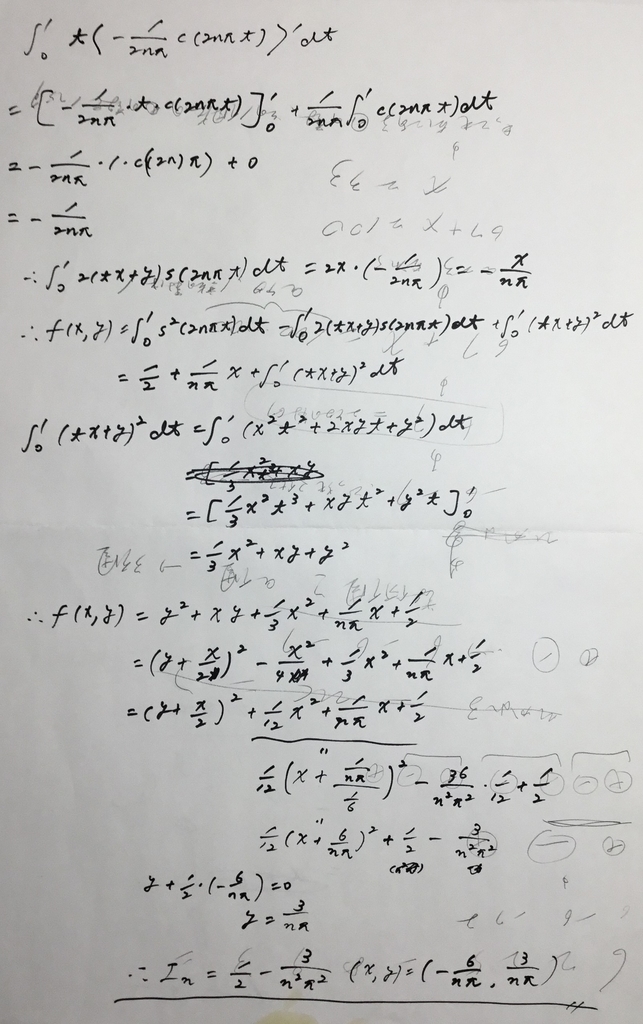 ∫₀¹ t(-1/2nπ c(2nπt))' dt
= [-1/2nπ · t · c(2nπt)]₀¹ + 1/2nπ ∫₀¹ c(2nπt)dt
= -1/2nπ · 1 · c((2n)π) + 0
= -1/2nπ
∴ ∫₀¹ 2(tx+y)s(2nπt)dt = 2x·(-1/2nπ) = -x/nπ
∴ f(x,y) = ∫₀¹ s²(2nπt)dt - ∫₀¹ 2(tx+y)s(2nπt)dt + ∫₀¹ (tx+y)² dt
= 1/2 + 1/nπ x + ∫₀¹ (tx+y)² dt
∫₀¹ (tx+y)² dt = ∫₀¹ (x²t² + 2xyt + y²) dt
= [1/3 x²t³ + xyt² + y²t]₀¹
= 1/3 x² + xy + y²
∴ f(x,y) = y² + xy + 1/3 x² + 1/nπ x + 1/2
= (y + x/2)² - x²/4 + 1/3 x² + 1/nπ x + 1/2
= (y + x/2)² + 1/12 x² + 1/nπ x + 1/2
"
1/12 (x + (1/nπ)/(1/6))² - 36/n²π² · 1/12 + 1/2
"
1/12 (x + 6/nπ)² + 1/2 - 3/n²π²
y + 1/2·(-6/nπ) = 0
y = 3/nπ
∴ Iₙ = 1/2 - 3/n²π² (x,y) = (-6/nπ, 3/nπ)